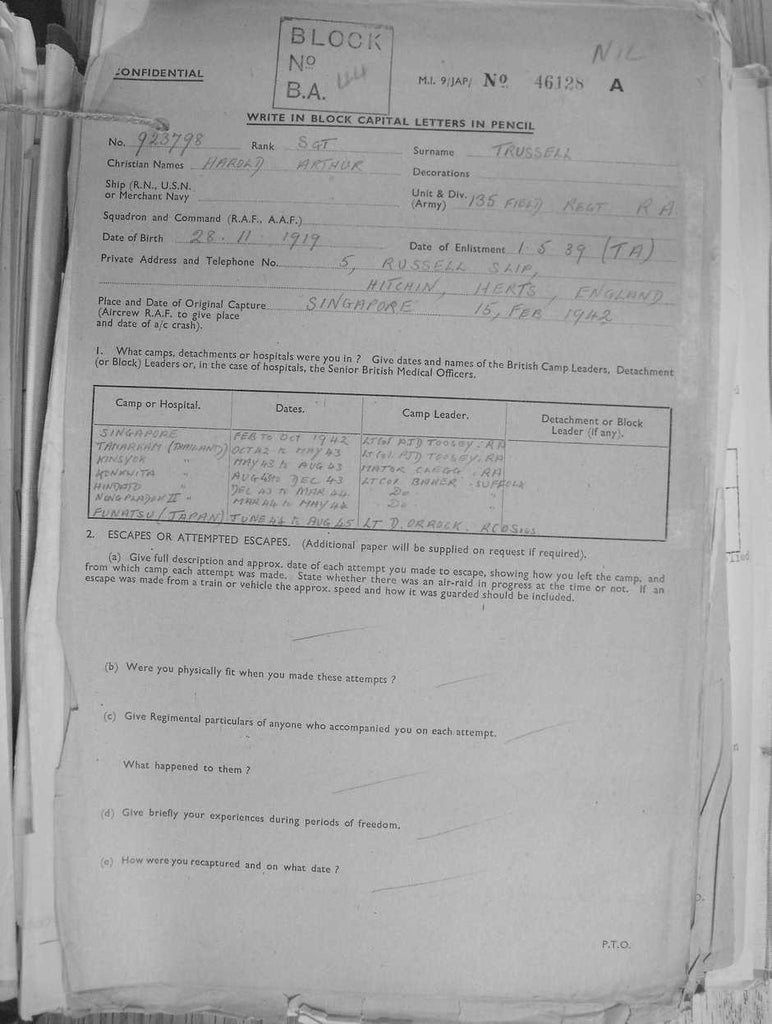 BLOCK
Nº
B.A. 44
NIL
CONFIDENTIAL
M.I. 9/JAP/ Nº 46128 A
WRITE IN BLOCK CAPITAL LETTERS IN PENCIL
No. 923798 Rank SGT Surname TRUSSELL
Christian Names HAROLD ARTHUR Decorations
Ship (R.N., U.S.N. or Merchant Navy
Unit & Div. (Army) 135 FIELD REGT R A
Squadron and Command (R.A.F., A.A.F.)
Date of Birth 28. 11. 1919 Date of Enlistment 1. 5. 39 (TA)
Private Address and Telephone No. 5, RUSSELL SLIP,
HITCHIN, HERTS, ENGLAND
Place and Date of Original Capture SINGAPORE 15, FEB 1942
(Aircrew R.A.F. to give place
and date of a/c crash).
1. What camps, detachments or hospitals were you in ? Give dates and names of the British Camp Leaders, Detachment
(or Block) Leaders or, in the case of hospitals, the Senior British Medical Officers.
Camp or Hospital. Dates. Camp Leader. Detachment or Block Leader (if any).
SINGAPORE FEB TO OCT 1942 LT COL PJD TOOSEY. RA
TAMARKAM (THAILAND) OCT 42 to MAY 43 LT COL PJD TOOSEY. RA
KINSYOK " MAY 43 to AUG 43 MAJOR CLEGG. RA
KONKWITA " AUG 43 to DEC 43 LT COL SUFFOLK
HINDATO " DEC 43 to MAR 44 Do "
NONG PLADUK II " MAR 44 to MAY 44 Do "
FUNATSU (JAPAN) JUNE 44 to AUG 45 LT D. ORROCK. RCOSigs
2. ESCAPES OR ATTEMPTED ESCAPES. (Additional paper will be supplied on request if required).
(a) Give full description and approx. date of each attempt you made to escape, showing how you left the camp, and
from which camp each attempt was made. State whether there was an air-raid in progress at the time or not. If an
escape was made from a train or vehicle the approx. speed and how it was guarded should be included.
(b) Were you physically fit when you made these attempts ?
(c) Give Regimental particulars of anyone who accompanied you on each attempt.
What happened to them ?
(d) Give briefly your experiences during periods of freedom.
(e) How were you recaptured and on what date ?
P.T.O.